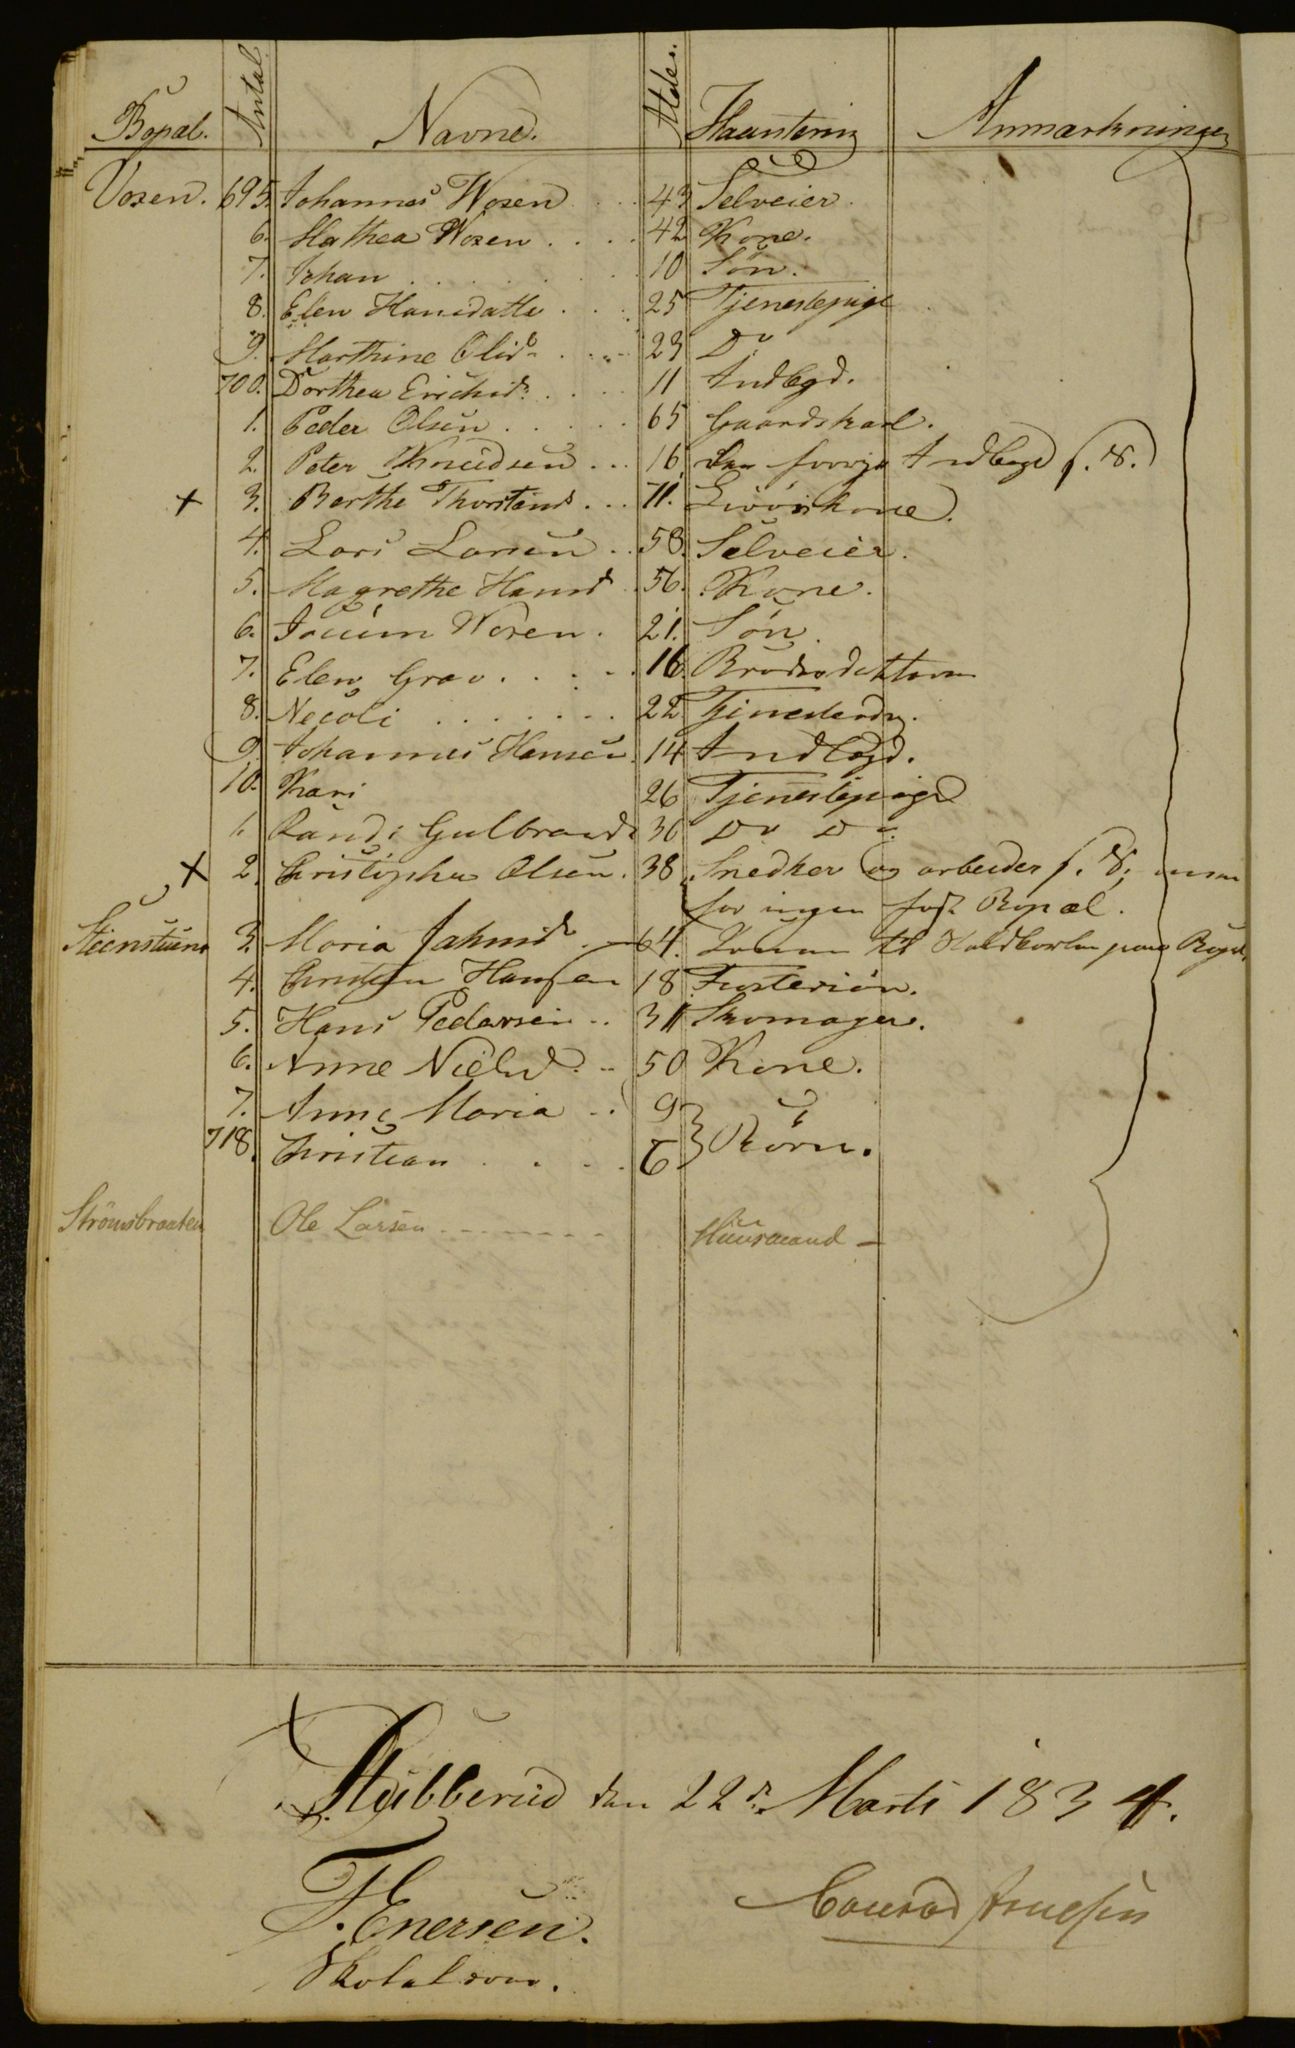 Bopæl. Antal Navne. Alder. Haantering Anmærkninger
Vosen. 695. Johannes Wosen 49 Selveier.
6. Mathea Wosen 42 Kone.
7. Johan 10 Søn.
8. Elen Hansdatte 25 Tjenestepige
9. Marthine Olsd. 23 Do
700. Dorthea Erichsd. 11 Indlagd.
1. Peder Olsen 65 Gaardskarl.
2. Peter Knudsen 16 den forrige Indlagd f. N.
x 3. Berthe Thorstensd. 71. Livørskone.
4. Lars Larsen 58. Selveier.
5. Magrethe Hansd 56. Kone.
6. Jouim Wosen. 21. Søn.
7. Elen Grav 16. Brodersdatteren
8. Necoli 22 Tjenestedr.
9. Johannes Hansen. 14 Indlagd.
10. Kari 26 Tjenestepige
1. Randi Gulbrands 36 Do Do
x 2. Christopher Olsen. 38. Snedker og arbeider f. N; men
har ingen fast Bopæl.
Steenstuen 3. Maria Jahnsd. 64. til
4. Hansen 18 Fostersøn.
5. Hans Pedersen 31 Skomager.
6. Anne Nielsd. 50 Kone.
7. Anne Maria 9
718. Christian 6 } Børn.
Strömsbraaten Ole Larsen Huusmand -
Stubberud den 22de Marts 1834.
T. Enersen. Conrad Arnesen
Skolel.